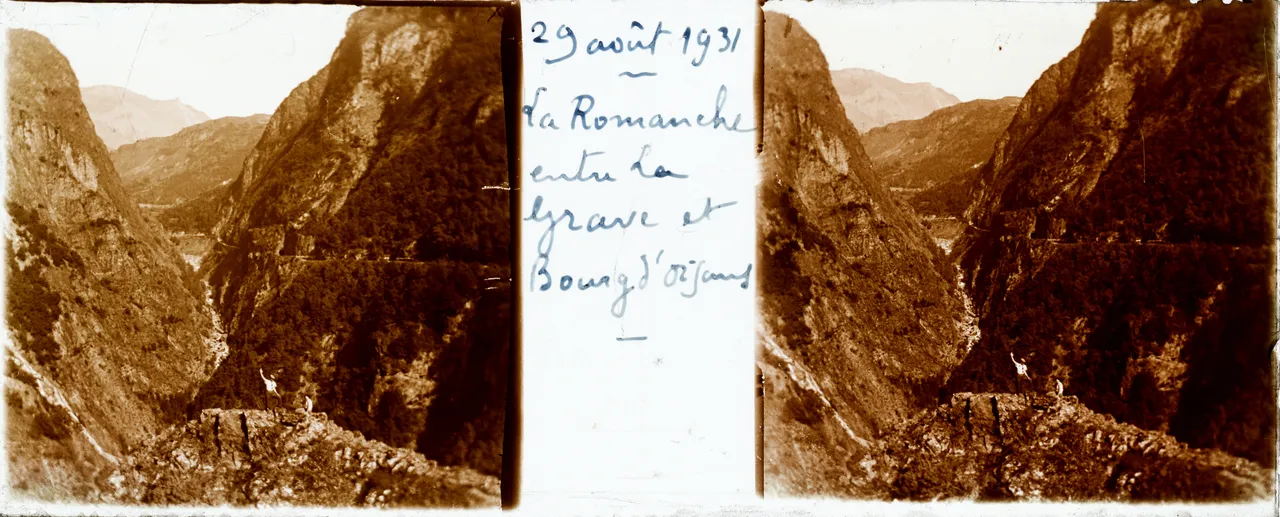 29 août 1931
La Romanche
entre La
Grave et
Bourg d'oisans